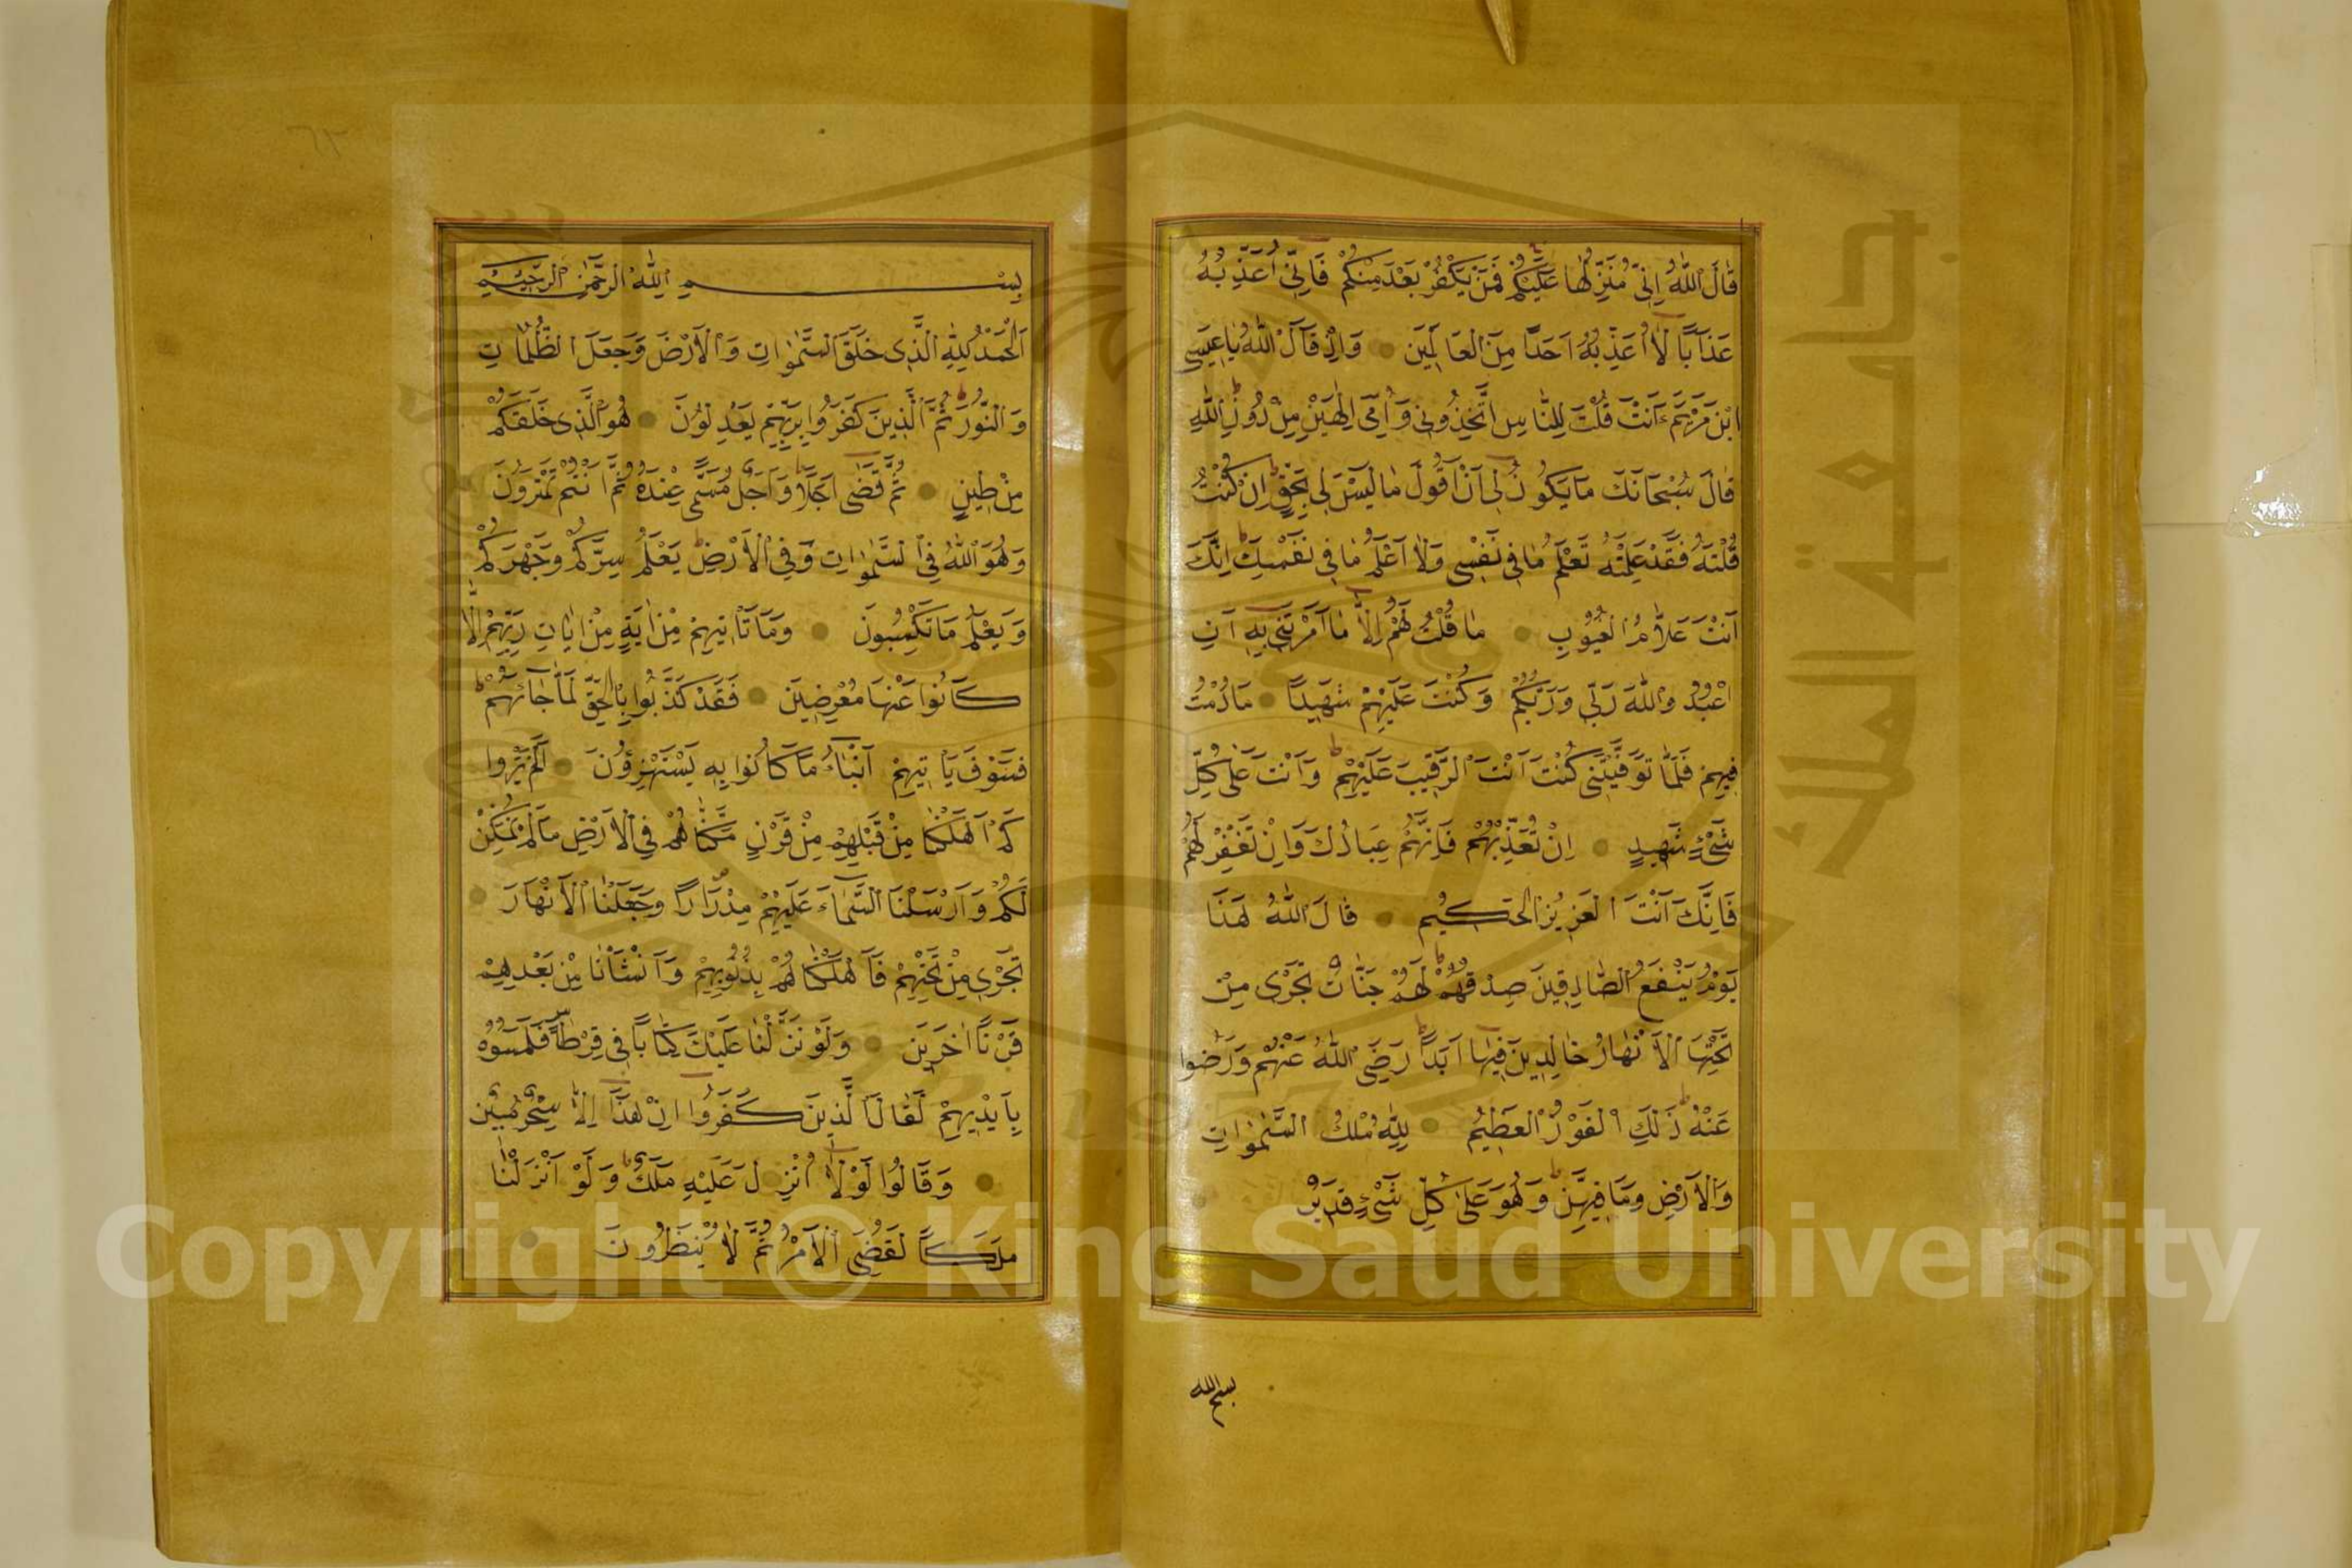 قَالَ اللّٰهُ اِنِّي مُنَزِّلُهَا عَلَيْكُمْ فَمَنْ يَكْفُرْ بَعْدُ مِنْكُمْ فَاِنِّي اُعَذِّبُهُ
عَذَابًا لَا اُعَذِّبُهُ اَحَدًا مِنَ الْعَالَمِينَ وَاِذْ قَالَ اللّٰهُ يَا عِيسَى
ابْنَ مَرْيَمَ ءَاَنْتَ قُلْتَ لِلنَّاسِ اتَّخِذُونِي وَاُمِّيَ اِلٰهَيْنِ مِنْ دُونِ اللّٰهِ
قَالَ سُبْحَانَكَ مَا يَكُونُ لِي اَنْ اَقُولَ مَا لَيْسَ لِي بِحَقٍّ اِنْ كُنْتُ
قُلْتُهُ فَقَدْ عَلِمْتَهُ تَعْلَمُ مَا فِي نَفْسِي وَلَا اَعْلَمُ مَا فِي نَفْسِكَ اِنَّكَ
اَنْتَ عَلَّامُ الْغُيُوبِ مَا قُلْتُ لَهُمْ اِلَّا مَا اَمَرْتَنِي بِهِ اَنِ
اعْبُدُوا اللّٰهَ رَبِّي وَرَبَّكُمْ وَكُنْتُ عَلَيْهِمْ شَهِيدًا مَا دُمْتُ
فِيهِمْ فَلَمَّا تَوَفَّيْتَنِي كُنْتَ اَنْتَ الرَّقِيبَ عَلَيْهِمْ وَاَنْتَ عَلٰى كُلِّ
شَيْءٍ شَهِيدٌ اِنْ تُعَذِّبْهُمْ فَاِنَّهُمْ عِبَادُكَ وَاِنْ تَغْفِرْ لَهُمْ
فَاِنَّكَ اَنْتَ الْعَزِيزُ الْحَكِيمُ قَالَ اللّٰهُ هٰذَا
يَوْمُ يَنْفَعُ الصَّادِقِينَ صِدْقُهُمْ لَهُمْ جَنَّاتٌ تَجْرِي مِنْ
تَحْتِهَا الْاَنْهَارُ خَالِدِينَ فِيهَا اَبَدًا رَضِيَ اللّٰهُ عَنْهُمْ وَرَضُوا
عَنْهُ ذٰلِكَ الْفَوْزُ الْعَظِيمُ لِلّٰهِ مُلْكُ السَّمٰوَاتِ
وَالْاَرْضِ وَمَا فِيهِنَّ وَهُوَ عَلٰى كُلِّ شَيْءٍ قَدِيرٌ
بسم الله
بِسْمِ اللّٰهِ الرَّحْمٰنِ الرَّحِيمِ
اَلْحَمْدُ لِلّٰهِ الَّذِي خَلَقَ السَّمٰوَاتِ وَالْاَرْضَ وَجَعَلَ الظُّلُمَاتِ
وَالنُّورَ ثُمَّ الَّذِينَ كَفَرُوا بِرَبِّهِمْ يَعْدِلُونَ هُوَ الَّذِي خَلَقَكُمْ
مِنْ طِينٍ ثُمَّ قَضٰى اَجَلًا وَاَجَلٌ مُسَمًّى عِنْدَهُ ثُمَّ اَنْتُمْ تَمْتَرُونَ
وَهُوَ اللّٰهُ فِي السَّمٰوَاتِ وَفِي الْاَرْضِ يَعْلَمُ سِرَّكُمْ وَجَهْرَكُمْ
وَيَعْلَمُ مَا تَكْسِبُونَ وَمَا تَأْتِيهِمْ مِنْ اٰيَةٍ مِنْ اٰيَاتِ رَبِّهِمْ اِلَّا
كَانُوا عَنْهَا مُعْرِضِينَ فَقَدْ كَذَّبُوا بِالْحَقِّ لَمَّا جَاءَهُمْ
فَسَوْفَ يَأْتِيهِمْ اَنْبَاءُ مَا كَانُوا بِهِ يَسْتَهْزِؤُنَ اَلَمْ يَرَوْا
كَمْ اَهْلَكْنَا مِنْ قَبْلِهِمْ مِنْ قَرْنٍ مَكَّنَّاهُمْ فِي الْاَرْضِ مَا لَمْ نُمَكِّنْ
لَكُمْ وَاَرْسَلْنَا السَّمَاءَ عَلَيْهِمْ مِدْرَارًا وَجَعَلْنَا الْاَنْهَارَ
تَجْرِي مِنْ تَحْتِهِمْ فَاَهْلَكْنَاهُمْ بِذُنُوبِهِمْ وَاَنْشَأْنَا مِنْ بَعْدِهِمْ
قَرْنًا اٰخَرِينَ وَلَوْ نَزَّلْنَا عَلَيْكَ كِتَابًا فِي قِرْطَاسٍ فَلَمَسُوهُ
بِاَيْدِيهِمْ لَقَالَ الَّذِينَ كَفَرُوا اِنْ هٰذَا اِلَّا سِحْرٌ مُبِينٌ
وَقَالُوا لَوْلَا اُنْزِلَ عَلَيْهِ مَلَكٌ وَلَوْ اَنْزَلْنَا
مَلَكًا لَقُضِيَ الْاَمْرُ ثُمَّ لَا يُنْظَرُونَ
Copyright © King Saud University
جامعة الملك سعود
1957